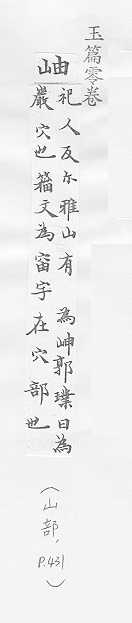 玉篇零卷
岫
祀人反尔雅山有 為岫郭璞曰為
巖穴也籀文為𥥉字在穴部也
(山部, P.431)